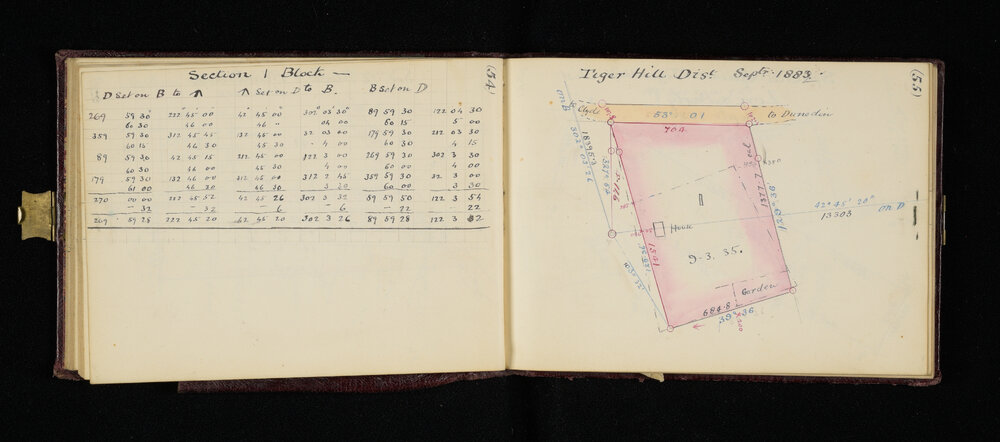 (54)
Section 1 Block —
D Set on B to ↑ ↑ Set on D to B. B Set on D
269 59 30 222 45 00 42 45 00 302° 03' 30" 89 59 30 122 04 30
60 30 46 00 46 " 04 00 60 15 5 00
359 59 30 312 45 45 132 45 00 32 03 00 179 59 30 212 03 30
60 15 46 30 45 30 4 00 60 30 4 15
89 59 30 42 45 15 212 45 00 122 3 00 269 59 30 302 3 30
60 30 46 00 45 30 4 00 60 00 4 00
179 59 30 132 46 00 312 45 00 312 2 45 359 59 30 32 3 00
61 00 46 30 46 30 3 30 60 00 3 30
270 00 00 222 45 52 42 45 26 302 3 32 89 59 50 122 3 54
— 32 — 32 — 6 — 6 — 22 22
269 59 28 222 45 20 42 45 20 302 3 26 89 59 28 122 3 32
(55)
Tiger Hill Dist Septr. 1883.
on B
to Clyde
53° 01
to Dunedin
704
302° 03' 26
42° 45' 20"
13303
on D
House
9-3. 35.
1541
Garden
684.8
39° 36